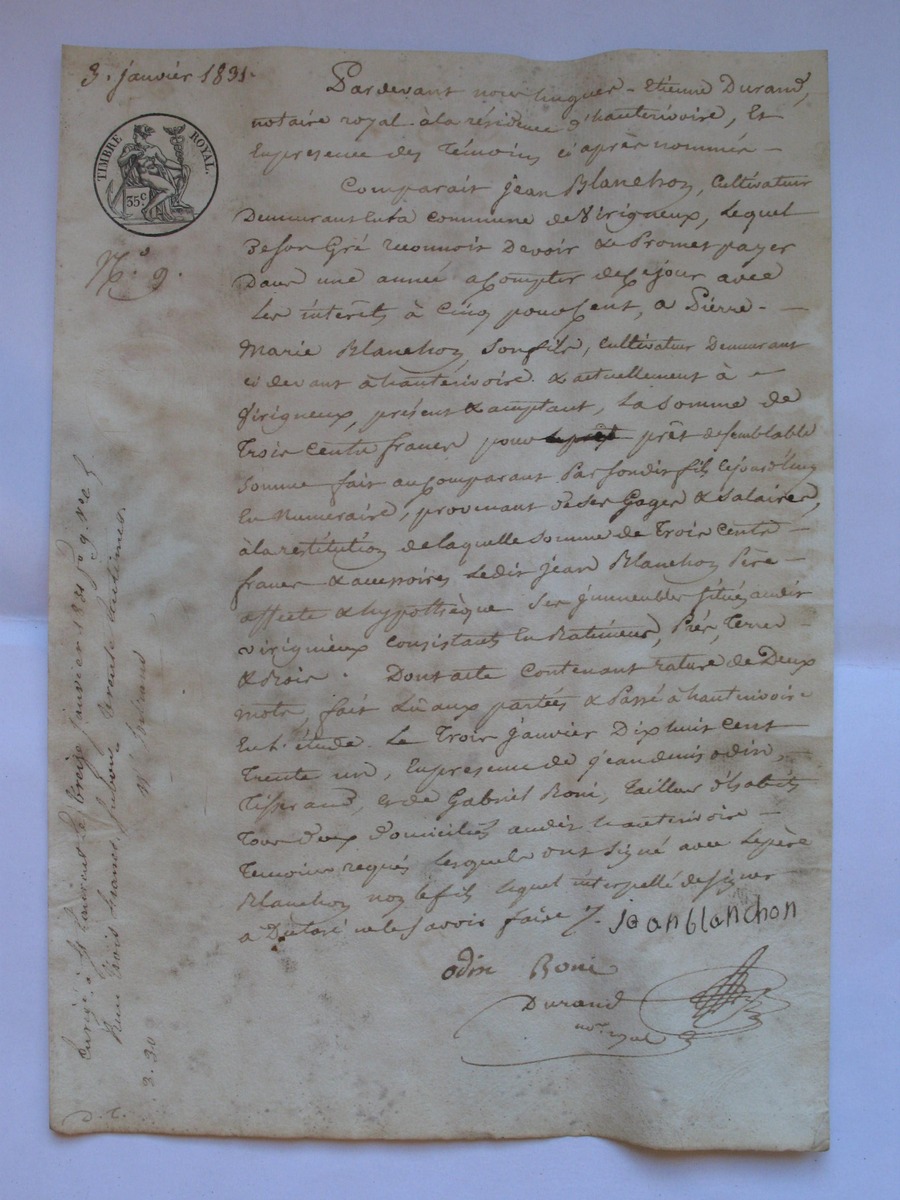 3. janvier 1831.
TIMBRE ROYAL.
35.c
N.o 9.
Pardevant nous hugues-Etienne Durand,
notaire royal à la résidence d'hauterivoire, Et
En presence des Témoins ci après nommés
Comparait jean Blanchon, Cultivateur
Demeurant En la commune de Virigneux, Lequel
De son Gré reconnoit Devoir & Promet payer
Dans une année a Compter de ce jour avec
Les intérêts à Cinq pour Cent, a Pierre-
Marie Blanchon son fils, cultivateur Demeurant
ci devant à hauterivoire & actuellement à
Virigneux, présent & acceptant, La somme de
Trois Cents francs pour prêt de semblable
somme fait au Comparant Par son dit fils cejourd'huy
En Numeraire, provenant de ses Gages & Salaires,
à la restitution de laquelle somme de Trois Cents
francs & accessoires Ledit jean Blanchon Père
affecte & hypothèque ses immeubles situés audit
virigneux consistants En Batiments, Prés, Terres
& Bois. Dont acte contenant rature de Deux
mots, fait Lû aux parties & Passé à hauterivoire
En l'étude. Le Trois Janvier Dix huit Cent
Trente un, En presence de jean denis odin,
Tisserand, & de Gabriel Roni, Tailleur d'habits
Tous Deux Domiciliés audit hauterivoire
Temoins requis lesquels ont signé avec Le père
Blanchon non le fils lequel interpellé de signer
a Déclaré ne le Savoir faire /.
jeanblanchon
odin Roni
Durand
nore. royal
Enrgé. à St Laurent le treize janvier 1831 fo. 9. Vo. c.
Reçu trois francs, subvon. trente centimes.
3. 30
D. C.